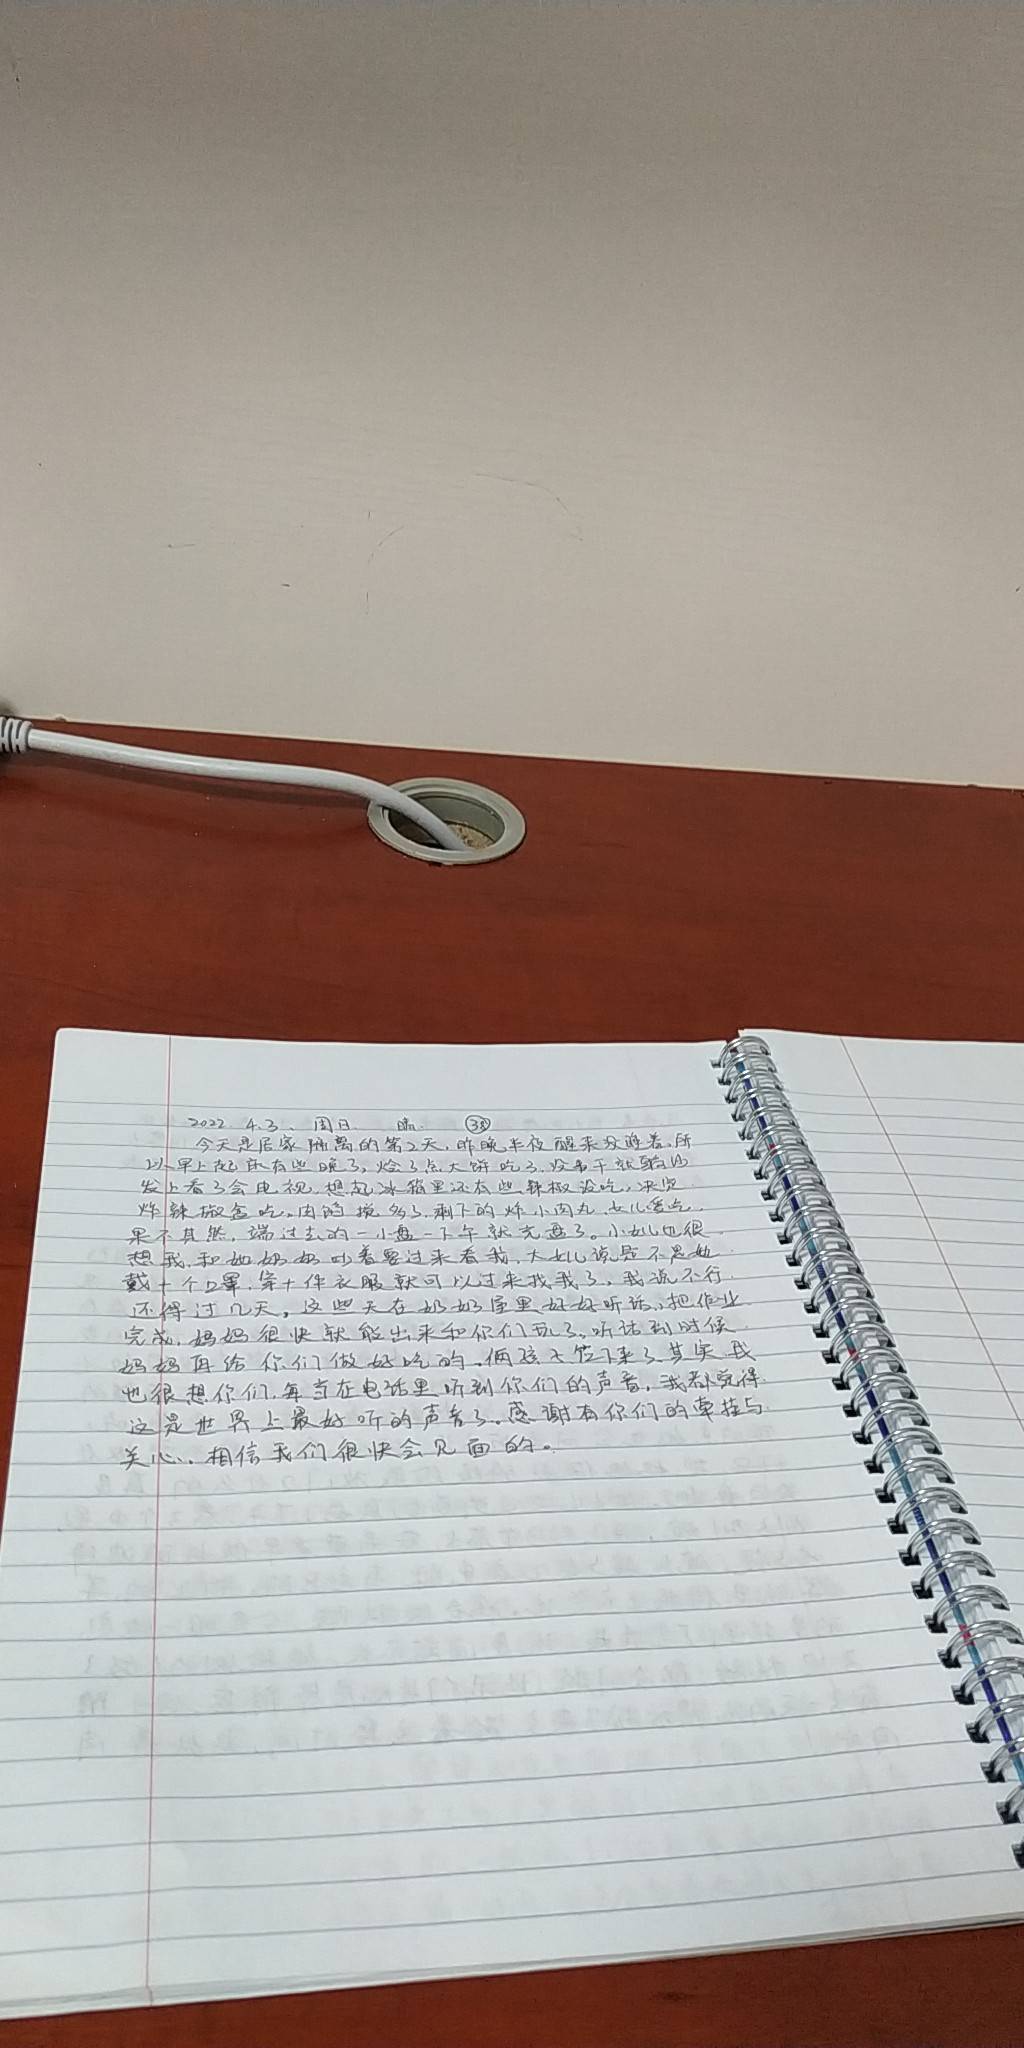 2022. 4.3、周日. 晴. 38
今天是居家隔离的第2天,昨晚半夜醒来没睡着,所
以早上起床有些晚了,烩了点大饼吃了,没事干就躺沙
发上看了会电视,想起冰箱里还有些辣椒没吃,决定
炸辣椒盒吃,肉馅搅多了,剩下的炸小肉丸,女儿爱吃,
果不其然,端过去的一小盘一下午就光盘了。小女儿也很
想我,和她奶奶吵着要过来看我,大女儿说是不是她
戴十个口罩,穿十件衣服就可以过来找我了,我说不行,
还得过几天,这些天在奶奶屋里好好听话,把作业
完成,妈妈很快就能出来和你们玩了,听话到时候
妈妈再给你们做好吃的,俩孩子答下来了,其实我
也很想你们,每当在电话里听到你们的声音,我都觉得
这是世界上最好听的声音了。感谢有你们的牵挂与
关心,相信我们很快会见面的。